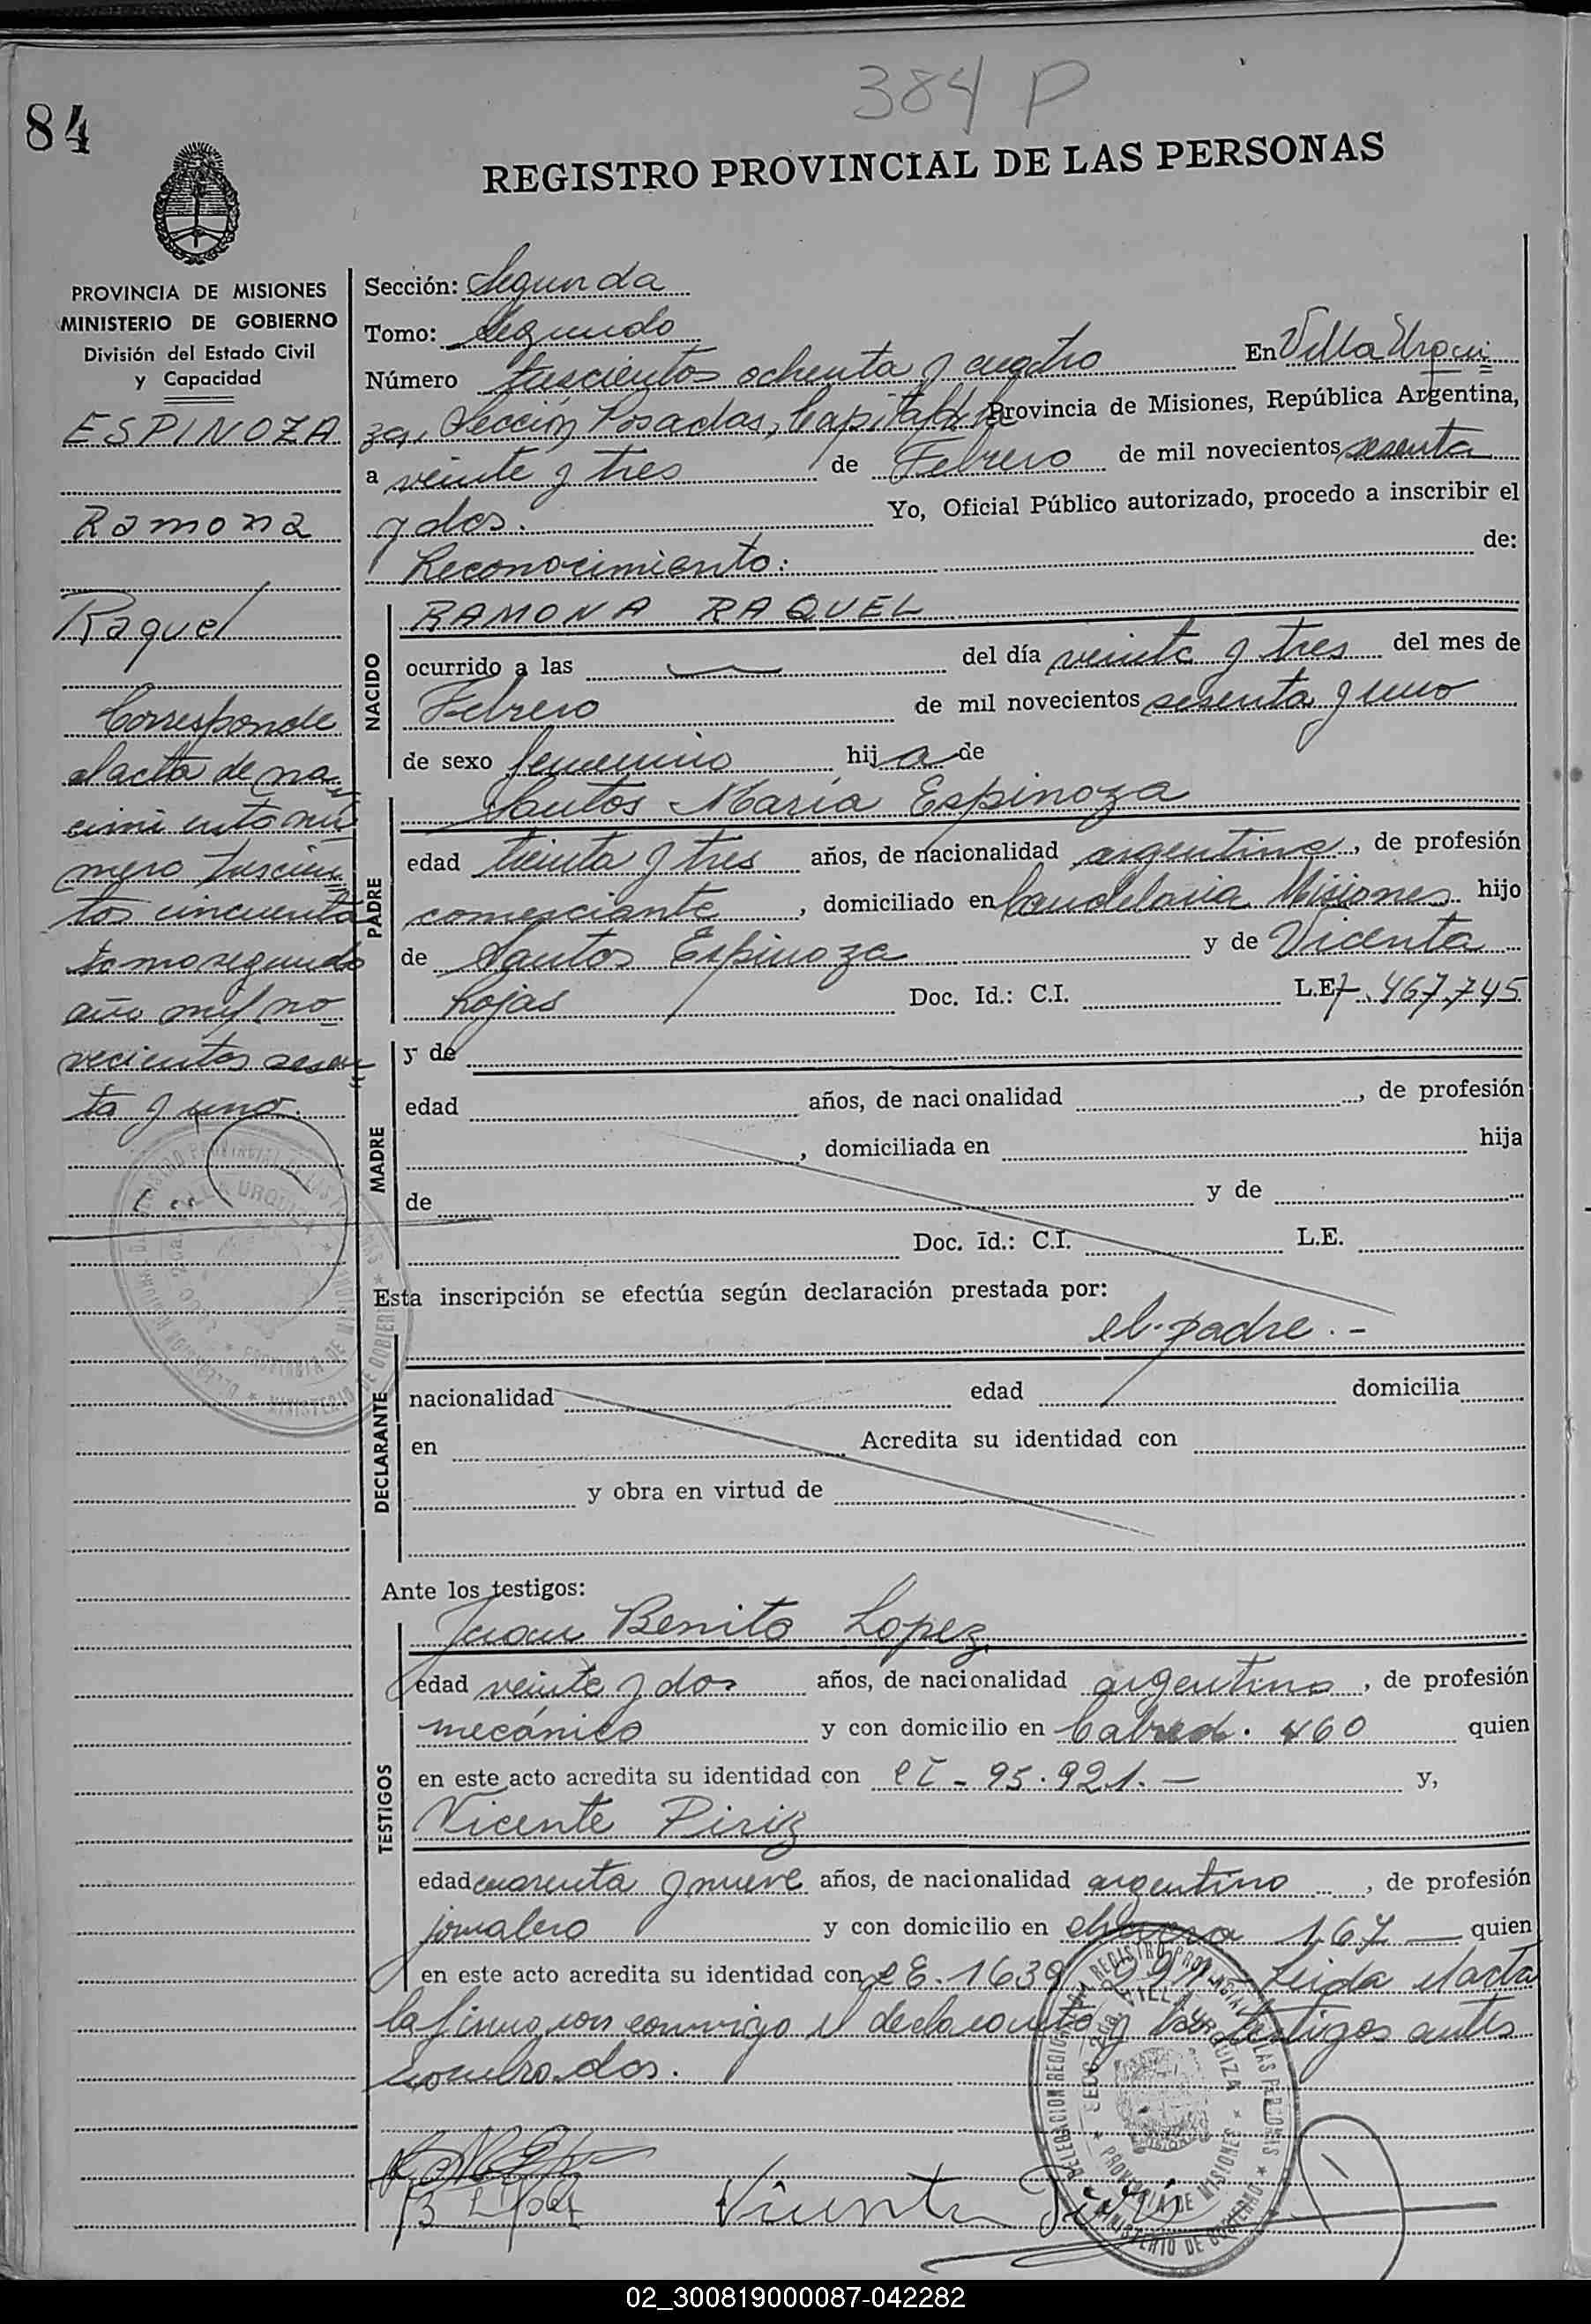 384 P
84
REGISTRO PROVINCIAL DE LAS PERSONAS
PROVINCIA DE MISIONES
MINISTERIO DE GOBIERNO
División del Estado Civil
y Capacidad
ESPINOZA
Ramona
Raquel
Corresponde
al acta de na-
cimiento nú
mero trescien
tos cincuenta
tomo segundo
año mil no-
vecientos sesen
ta y uno.
Sección: Segunda
Tomo: Segundo
Número trescientos ochenta y cuatro En Villa Urqui
za, Sección Posadas, Capital de Provincia de Misiones, República Argentina,
a veinte y tres de Febrero de mil novecientos sesenta
y dos. Yo, Oficial Público autorizado, procedo a inscribir el
Reconocimiento: de:
NACIDO
RAMONA RAQUEL
ocurrido a las del día veinte y tres del mes de
Febrero de mil novecientos sesenta y uno
de sexo femenino hija de
PADRE
Santos María Espinoza
edad treinta y tres años, de nacionalidad argentino, de profesión
comerciante, domiciliado en Candelaria Misiones hijo
de Santos Espinoza y de Vicenta
Rojas Doc. Id.: C.I. L.E. 7.467.745
MADRE
y de
edad años, de nacionalidad , de profesión
, domiciliada en hija
de y de
Doc. Id.: C.I. L.E.
Esta inscripción se efectúa según declaración prestada por:
el padre.-
DECLARANTE
nacionalidad edad domicilia
en Acredita su identidad con
y obra en virtud de
Ante los testigos:
TESTIGOS
Juan Benito Lopez
edad veinte y dos años, de nacionalidad argentino, de profesión
mecánico y con domicilio en Cabred. 460 quien
en este acto acredita su identidad con CI - 95.921.- y,
Vicente Piriz
edad cuarenta y nueve años, de nacionalidad argentino, de profesión
jornalero y con domicilio en 167 - quien
en este acto acredita su identidad con LE. 1639 Leida el acta
la firma con conmigo el declarante y los testigos antes
nombrados.
Vicente Piriz
VILLA URQUIZA
PROVINCIA DE MISIONES
MINISTERIO DE GOBIERNO
02_300819000087-042282